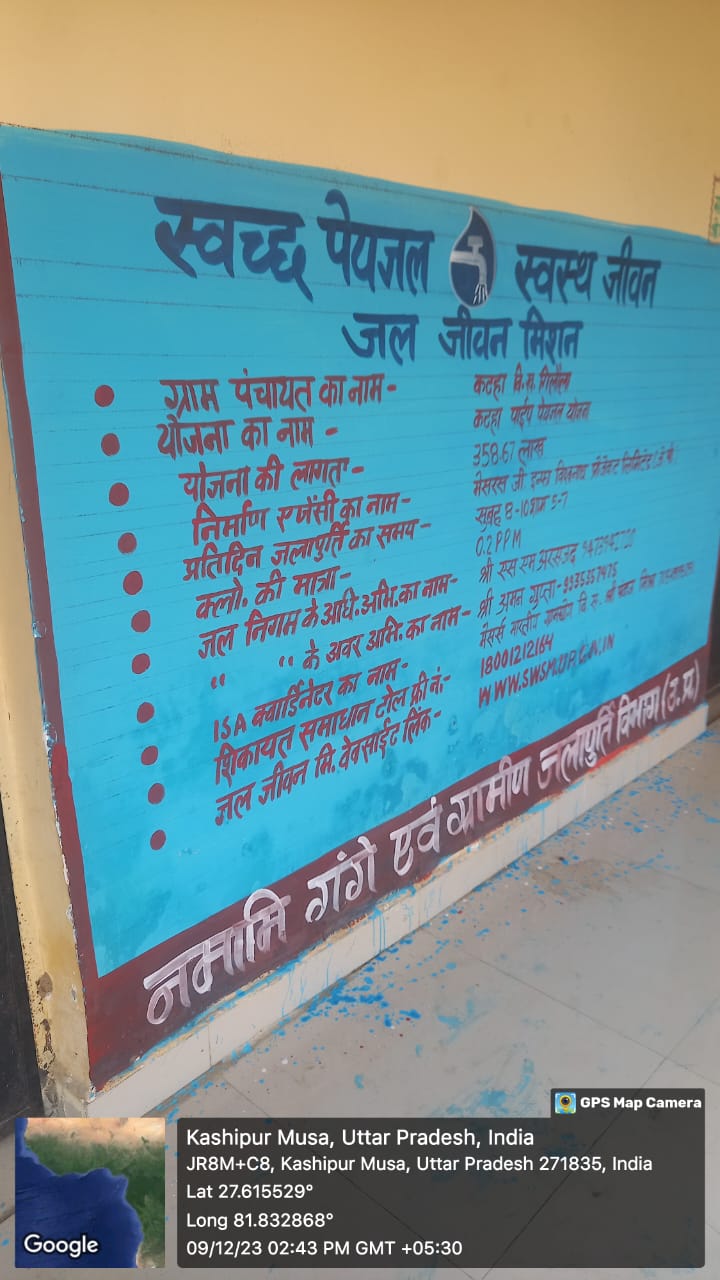 स्वच्छ पेयजल स्वस्थ जीवन
जल जीवन मिशन
ग्राम पंचायत का नाम - कटहा वि.ख. गिलौला
योजना का नाम - कटहा पाईप पेयजल योजना
योजना की लागत - 358.67 लाख
निर्माण एजेंसी का नाम - मेसरस जी इन्फ्रा विश्वनाथ प्रोजेक्ट लिमिटेड
प्रतिदिन जलापुर्ति का समय - सुबह 8-10 शाम 5-7
क्लो. की मात्रा - 0.2 PPM
जल निगम के अधि. अभि. का नाम - श्री एस एम अरसजद
" " के अवर अभि. का नाम - श्री अमन गुप्ता - 9935357475
ISA क्वार्डिनेटर का नाम - मेसर्स भारतीय ग्रामोद्योग वि. स. श्री
शिकायत समाधान टोल फ्री नं:- 18001212164
जल जीवन मि. वेबसाईट लिंक - WWW.SWSM.UP.GOV.IN
नमामि गंगे एवं ग्रामीण जलापुर्ति विभाग (उ.प्र.)
GPS Map Camera
Kashipur Musa, Uttar Pradesh, India
JR8M+C8, Kashipur Musa, Uttar Pradesh 271835, India
Lat 27.615529°
Long 81.832868°
09/12/23 02:43 PM GMT +05:30
Google